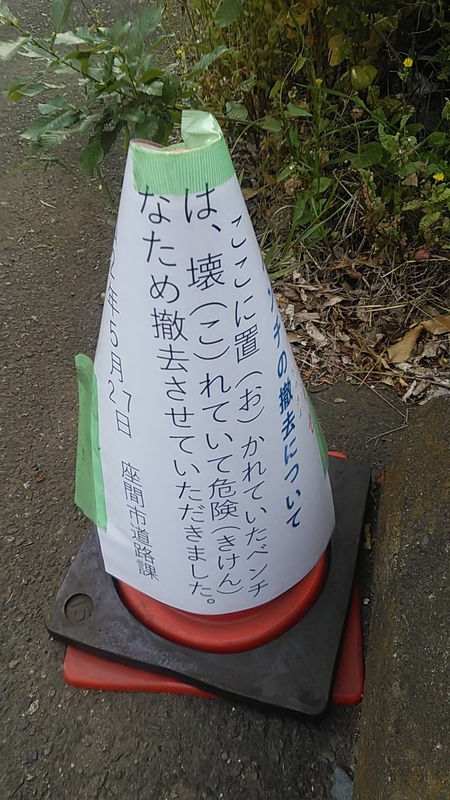 ンチの撤去について
ここに置（お）かれていたベンチ
は、壊（こ）れていて危険（きけん）
なため撤去させていただきました。
年5月27日 座間市道路課